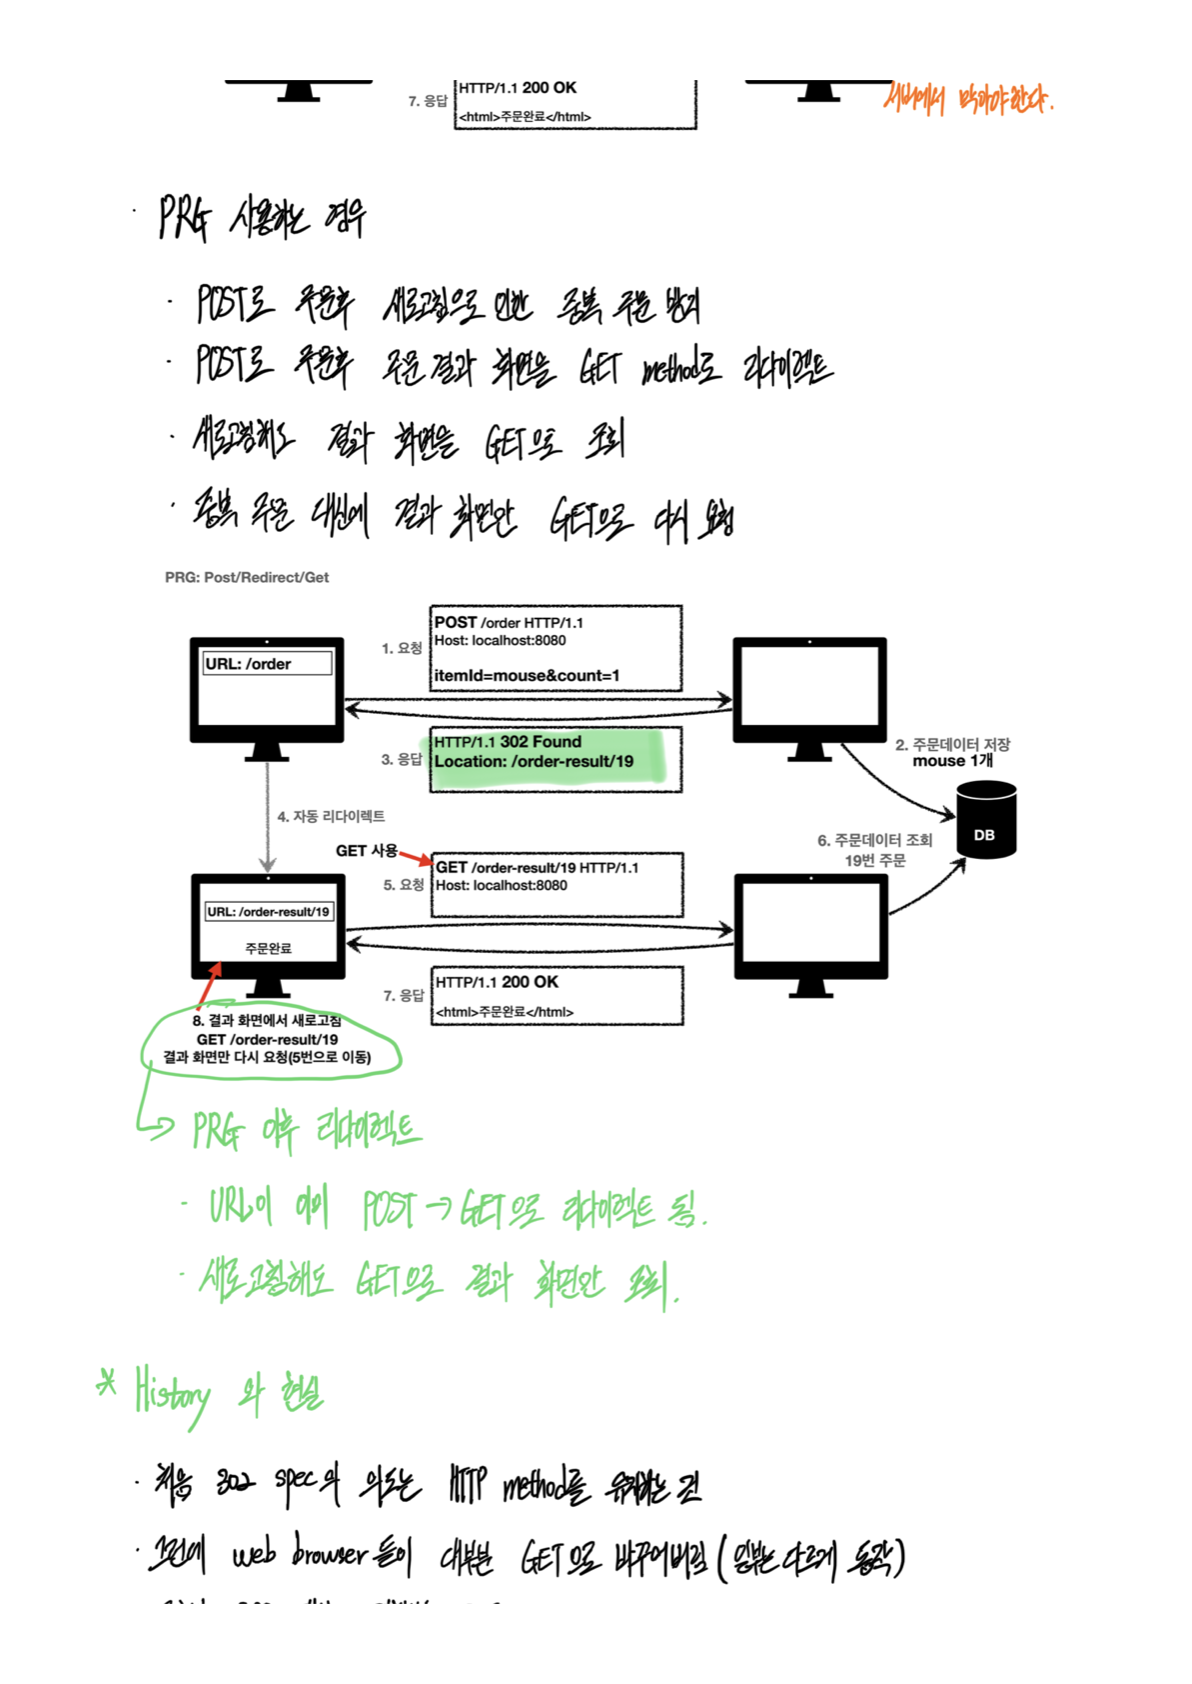 HTTP/1.1 200 OK
7. 응답
<html>주문완료</html>
서버에서 막아야한다.
· PRG 사용하는 경우
· POST로 주문후 새로고침으로 인한 중복 주문 방지
· POST로 주문후 주문 결과 화면을 GET method로 리다이렉트
· 새로고침해도 결과 화면을 GET으로 조회
· 중복 주문 대신에 결과 화면만 GET으로 다시 요청
PRG: Post/Redirect/Get
POST /order HTTP/1.1
Host: localhost:8080
1. 요청
itemId=mouse&count=1
URL: /order
HTTP/1.1 302 Found
3. 응답
Location: /order-result/19
2. 주문데이터 저장
mouse 1개
DB
4. 자동 리다이렉트
6. 주문데이터 조회
19번 주문
GET 사용
GET /order-result/19 HTTP/1.1
5. 요청
Host: localhost:8080
URL: /order-result/19
주문완료
HTTP/1.1 200 OK
7. 응답
<html>주문완료</html>
8. 결과 화면에서 새로고침
GET /order-result/19
결과 화면만 다시 요청(5번으로 이동)
PRG 이후 리다이렉트
- URL이 이미 POST → GET으로 리다이렉트 됨.
- 새로고침해도 GET으로 결과 화면만 조회.
* History 와 현실
· 처음 302 spec의 의도는 HTTP method를 유지하는 것
· 그런데 web browser들이 대부분 GET으로 바꾸어버림 (일부는 다르게 동작)